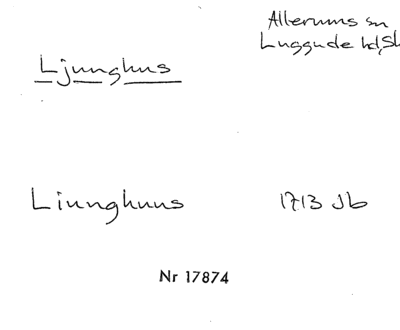 Allerums sn
Luggude hd, Sk
Ljunghus
Liunghuus 1713 Jb
Nr 17874